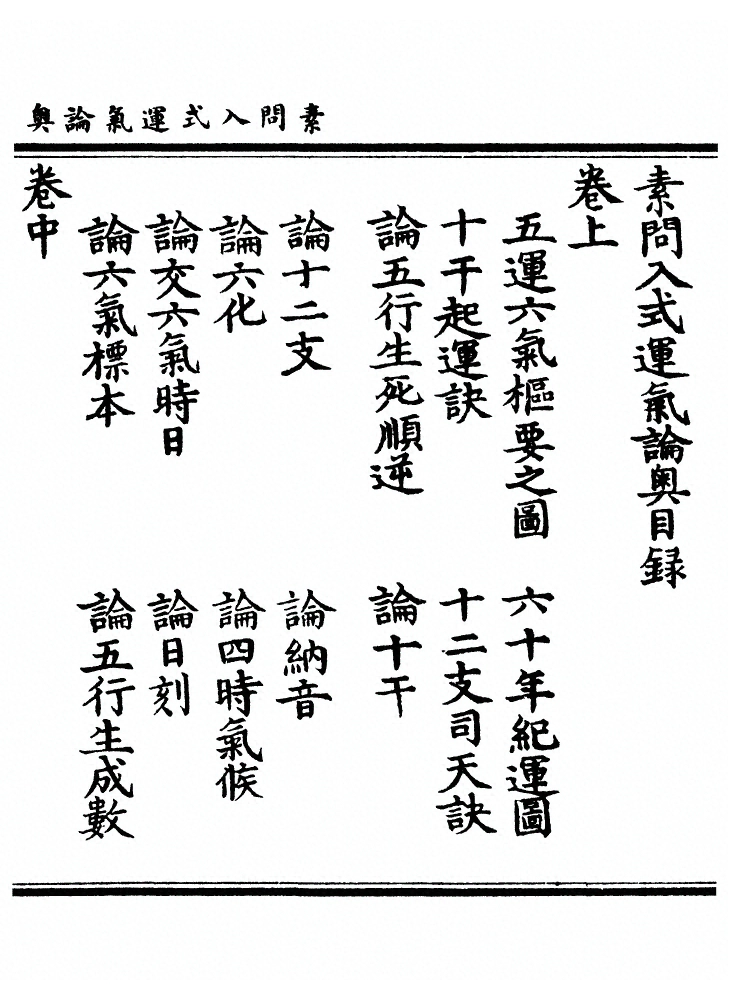 素問入式運氣論奥
素問入式運氣論奥目録
卷上
五運六氣樞要之圖 六十年紀運圖
十干起運訣 十二支司天訣
論五行生死順逆 論十干
論十二支 論納音
論六化 論四時氣候
論交六氣時日 論日刻
論六氣標本 論五行生成數
卷中